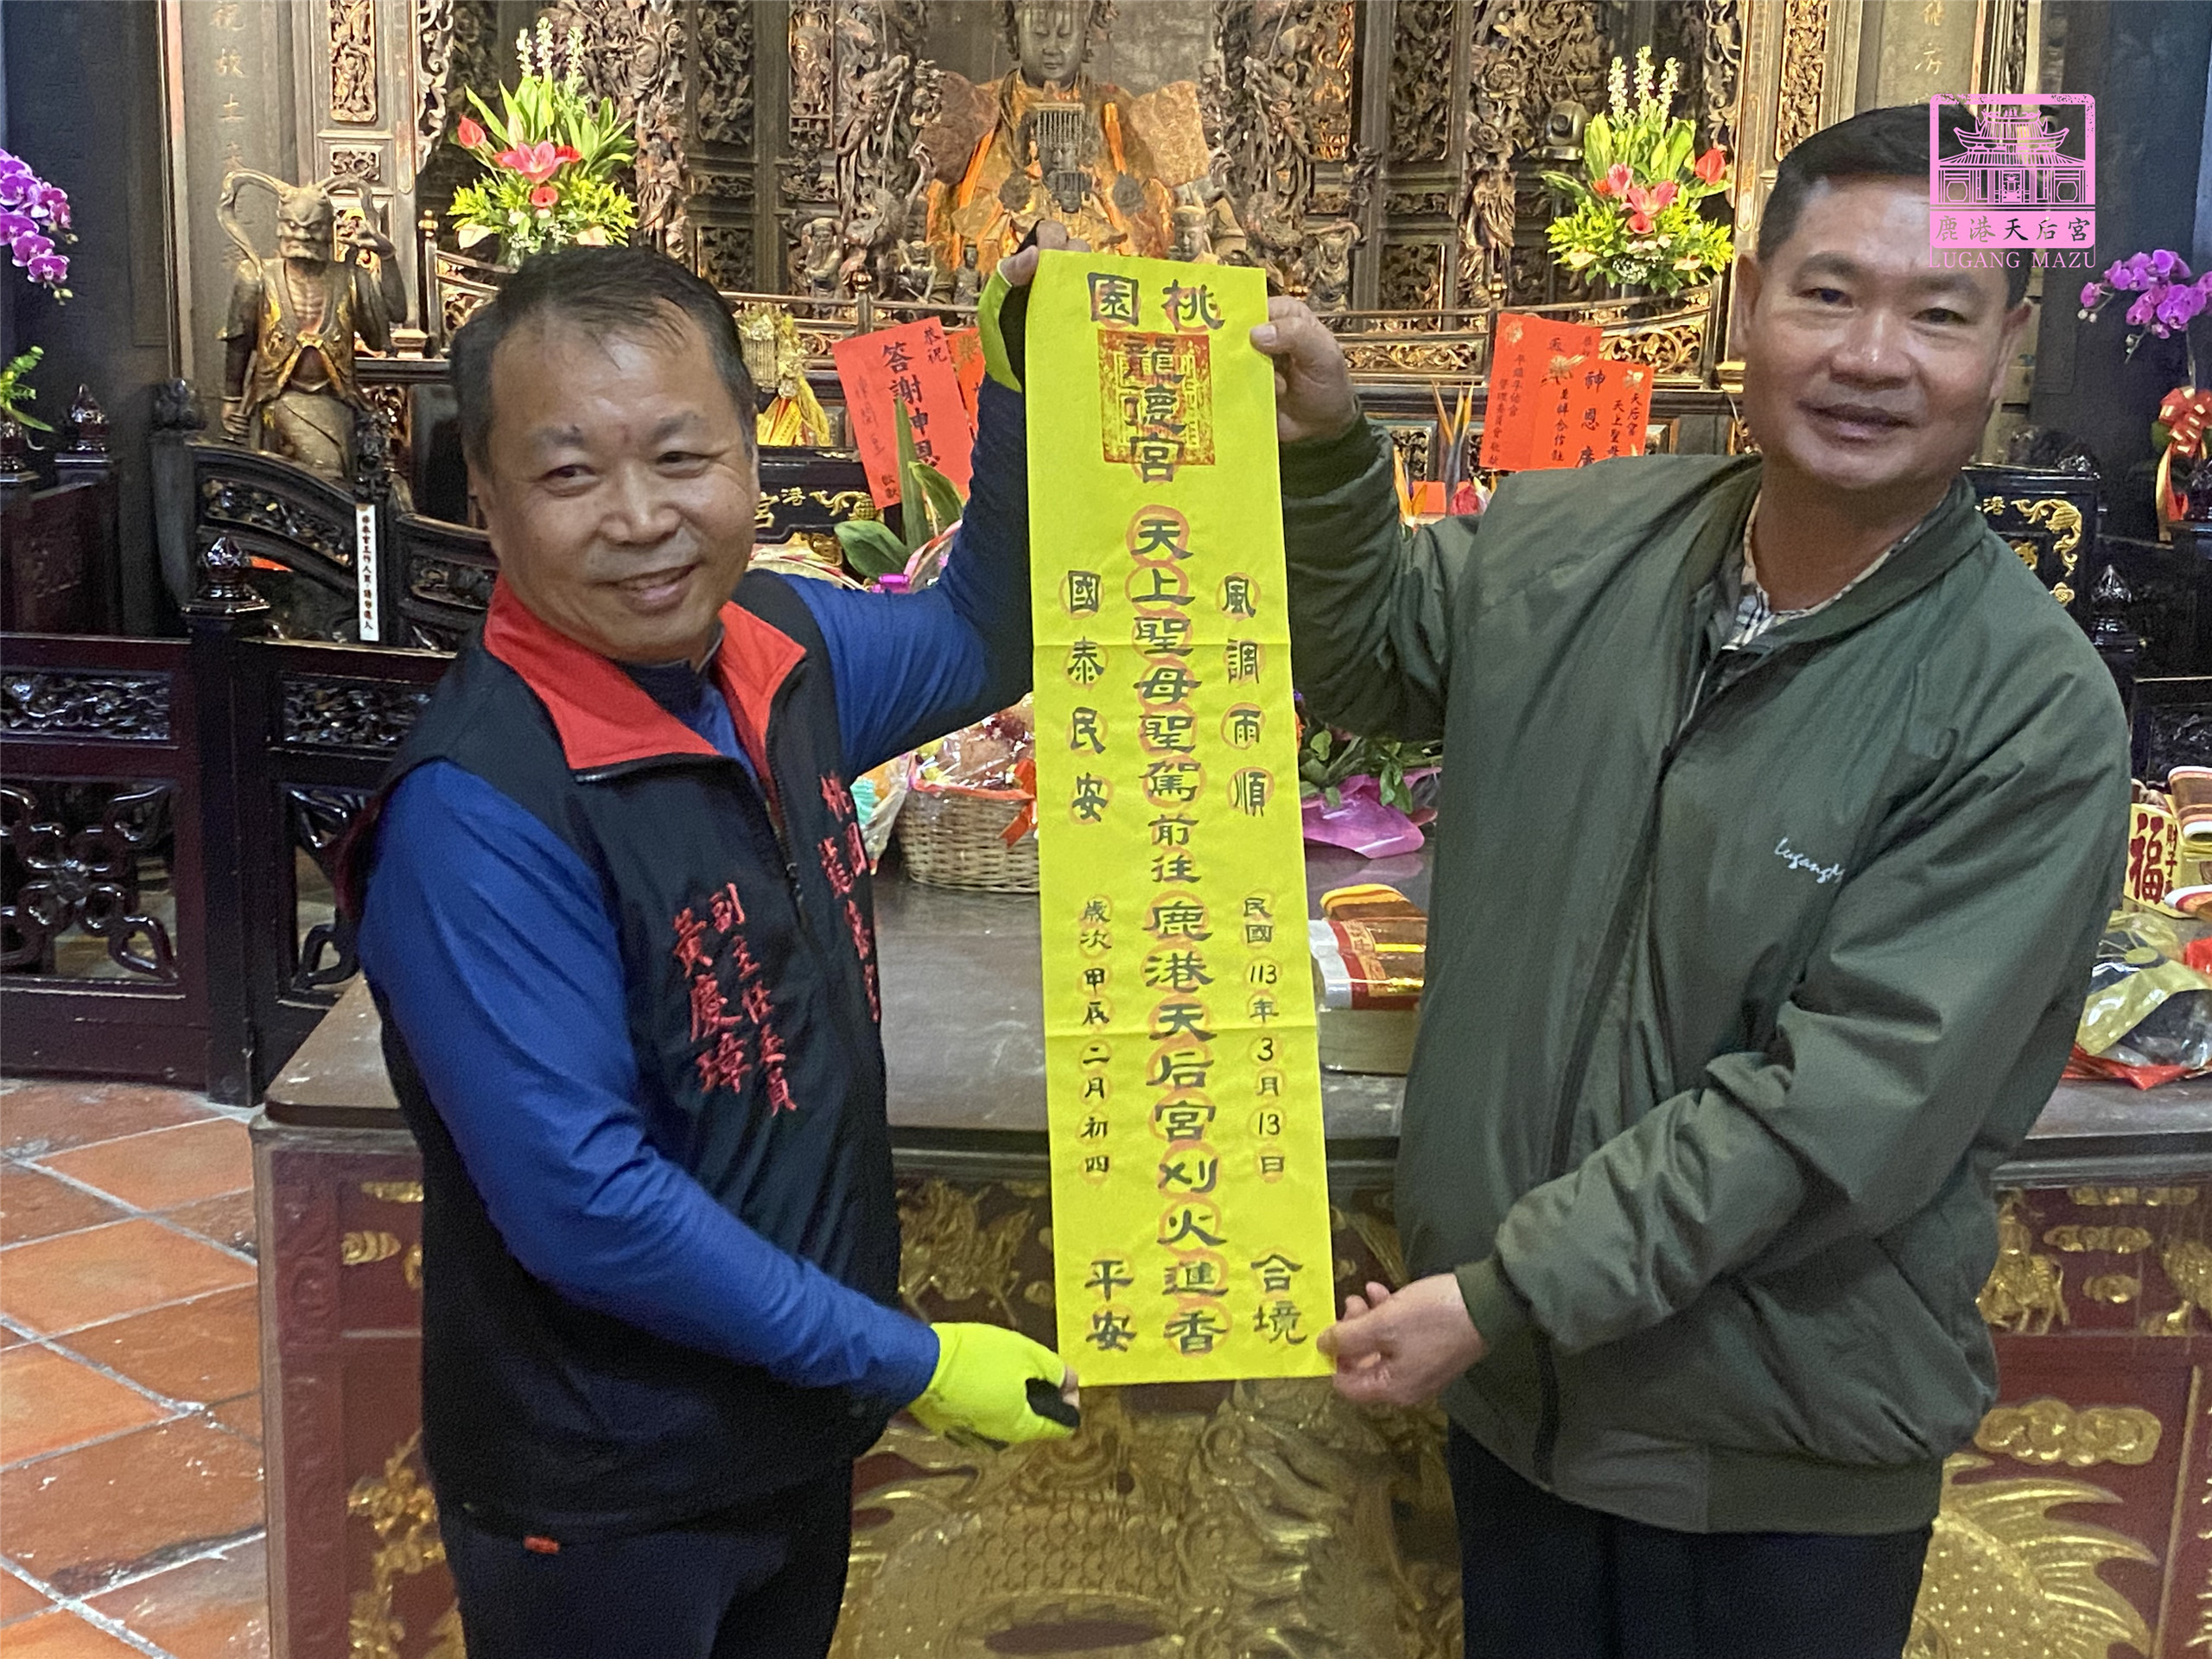 桃園
龍德宮
天上聖母聖駕前往鹿港天后宮刈火進香
風調雨順
國泰民安
民國113年3月13日
歲次甲辰二月初四
合境
平安
鹿港天后宮
LUGANG MAZU
恭祝
答謝神恩
副主任委員
黃慶璋
桃園龍德宮
神恩廣
天后宮
天上聖母
福
財子